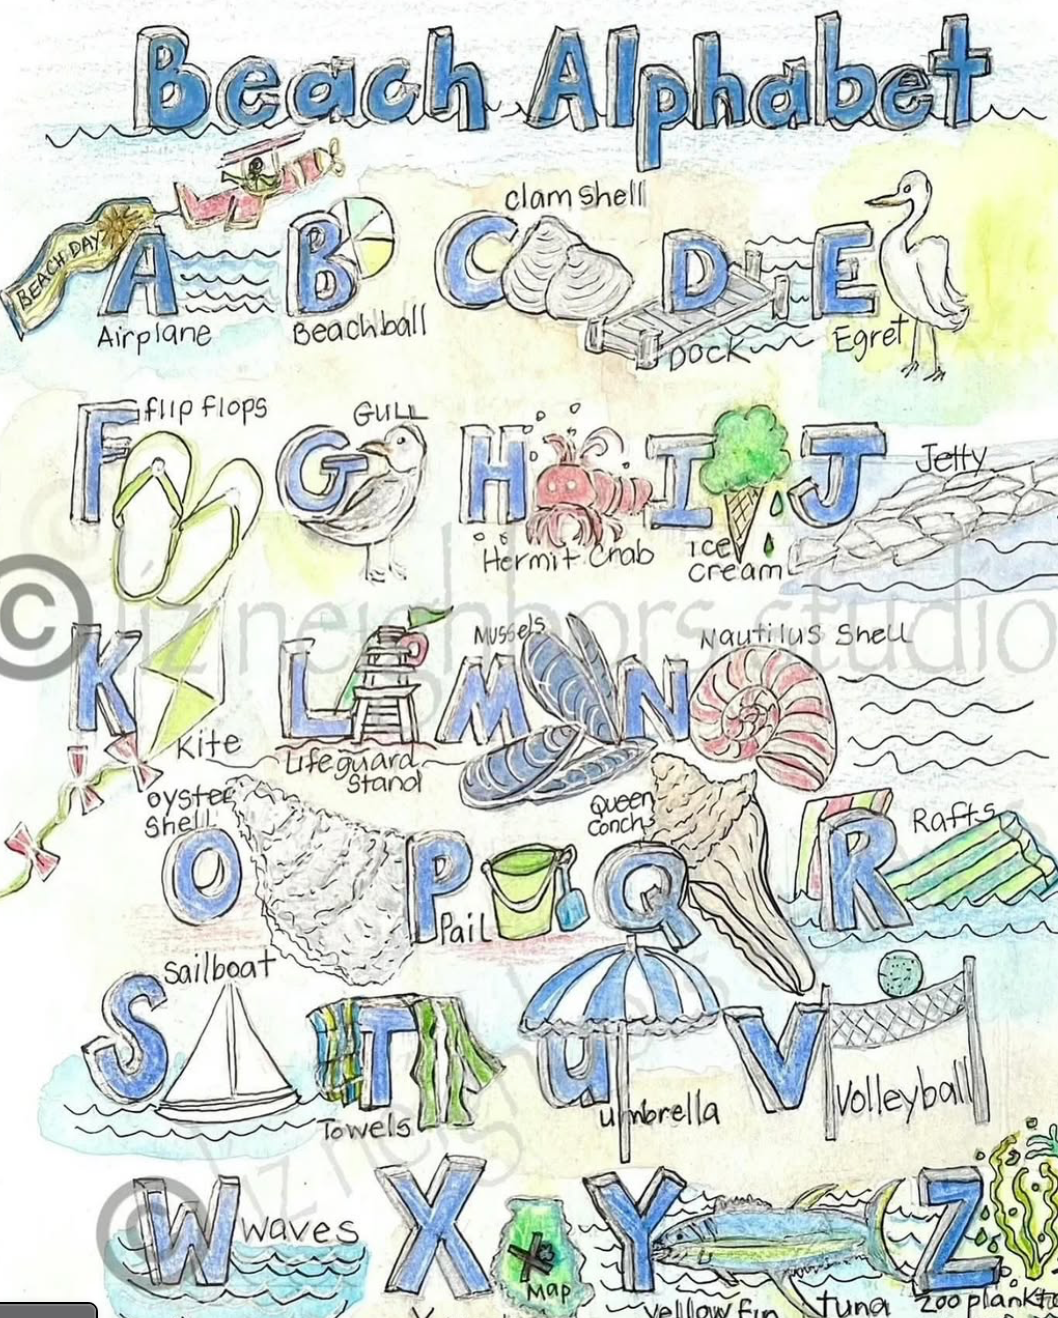 Beach Alphabet
BEACH DAY
A
Airplane
B
Beachball
C
clam shell
D
Dock
E
Egret
F
flip flops
G
GULL
H
Hermit Crab
I
Ice
cream
J
Jetty
© liz neighbors studio
K
Kite
L
Lifeguard
Stand
M
Mussels
N
Nautilus Shell
O
oyster
Shell
P
Pail
Q
Queen
Conch
R
Rafts
S
Sailboat
T
Towels
u
umbrella
V
Volleyball
W
waves
X
X
Map
Y
yellow fin tuna
Z